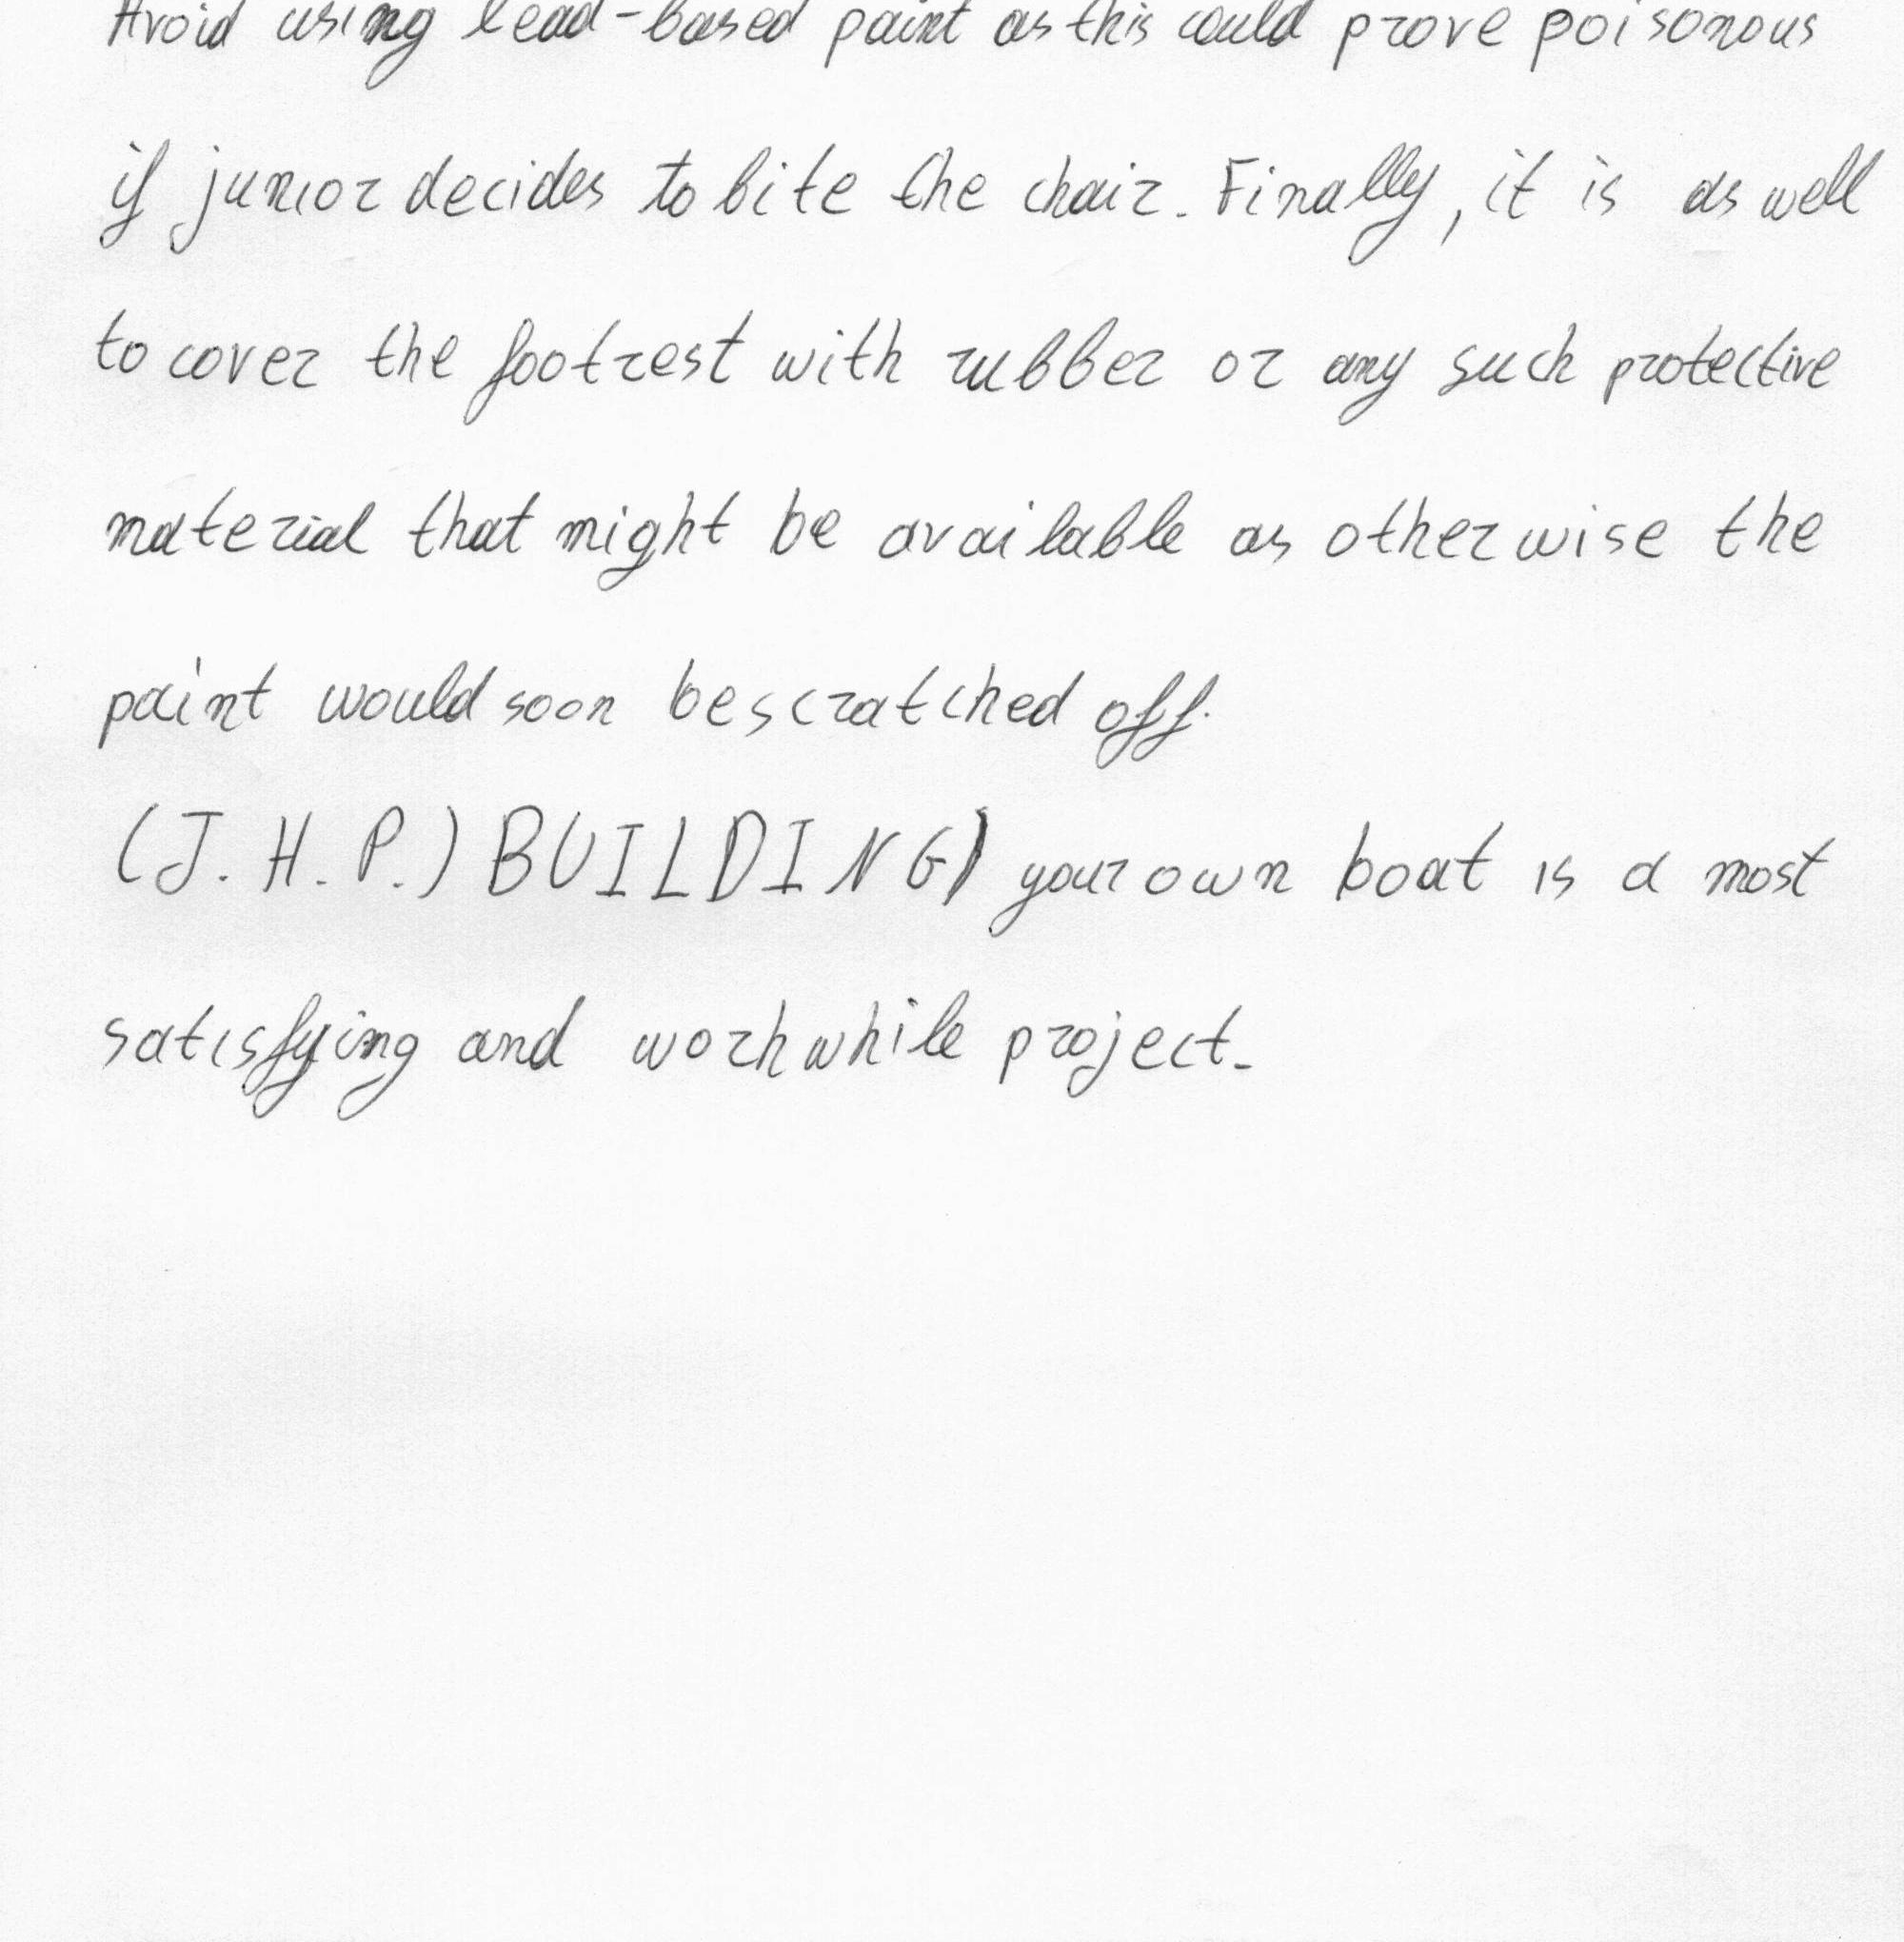 Avoid using lead-based paint as this could prove poisonous
if junior decides to bite the chair. Finally, it is as well
to cover the footrest with rubber or any such protective
material that might be available as otherwise the
paint would soon be scratched off.
(J.H.P.) BUILDING) your own boat is a most
satisfying and worhwhile project.